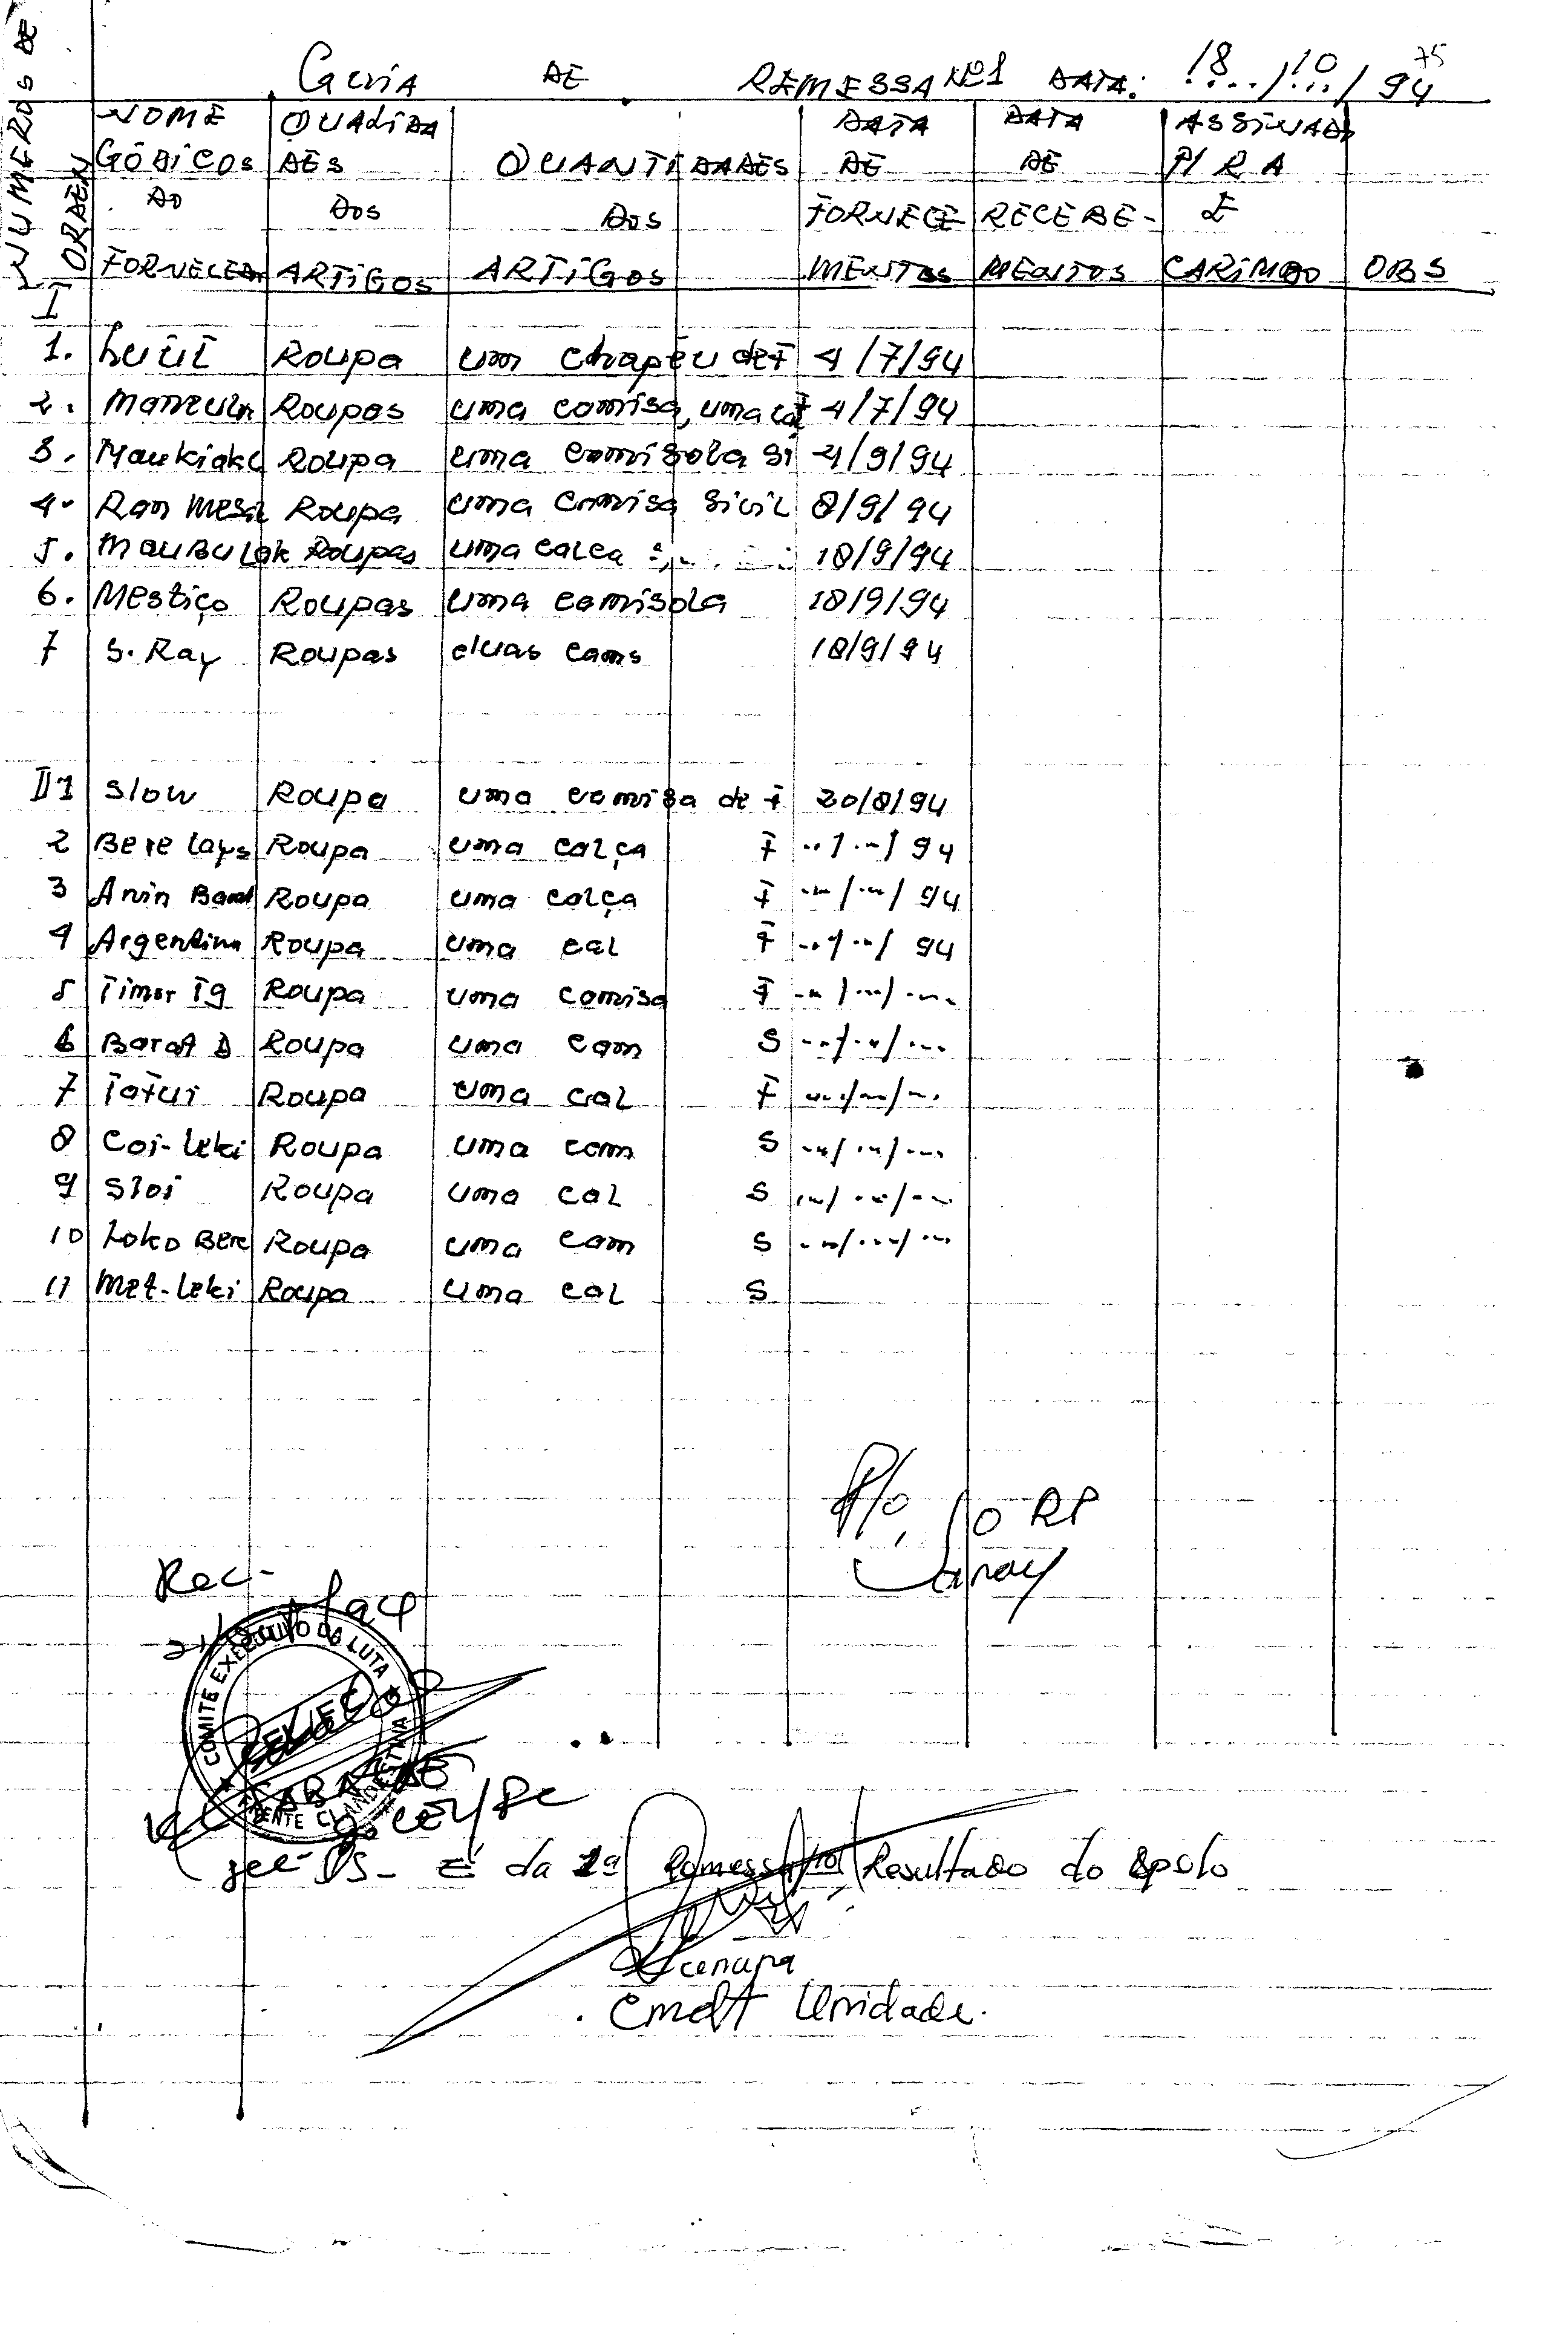 75
Guia DE REMESSA Nº1 DATA: 18/10/94
NUMEROS DE ORDEN
NOME QUALIDA DATA DATA ASSINADO
CÓDICOS DES QUANTIDADES DE DE P/ R A
DO DOS DOS FORNECE RECEBE- E
FORNECEDA ARTIGOS ARTIGOS MENTOS MENTOS CARIMBO OBS
I
1. Roupa um chapéu de F 4/7/94
2. Roupas uma camisa, uma cal F 4/7/94
3. Maukiake Roupa uma camisola si 4/9/94
4. Ran Mesil Roupa uma camisa sivil 8/9/94
5. MauBulak Roupas uma calca 18/9/94
6. Mestiço Roupas uma camisola 18/9/94
7 S. Ray Roupas duas cams 18/9/94
II 1 Slow Roupa uma camisa de F 20/8/94
2 Bere Roupa uma calça F ../../94
3 Anin Roupa uma calça F ../../94
4 Argentina Roupa uma cal F ../../94
5 Timor Roupa uma camisa F ../../..
6 Barat D Roupa uma cam S ../../..
7 Tatui Roupa uma cal F ../../..
8 Coi-leki Roupa uma cam S ../../..
9 Sloi Roupa uma cal S ../../..
10 Loko Bere Roupa uma cam S ../../..
11 Met-leki Roupa uma cal S
P/o, RP
Rec-
COMITE EXECUTIVO DA LUTA
FRENTE CLANDESTINA
CEL/FC
SABALAE
CEL/FC
PS- É da 1ª Remessa Resultado do apolo
Cmdt Unidade.